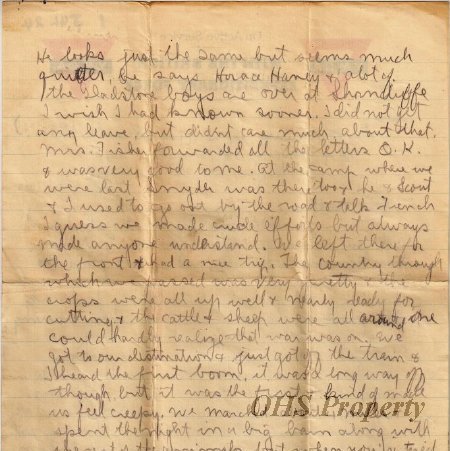 He looks just the same but seems much
quieter, he says Horace Haney & a lot of
the Gladstone boys are over at Shorncliffe
I wish I had known sooner. I did not get
any leave, but didnt care much about that.
Mrs. Fisher forwarded all the letters O.K.
& was very good to me. At the camp where we
were last Snyder was there too & he & Scout
& I used to go out by the road & talk French
I guess we made crude efforts but always
made anyone understand. We left there for
the front & had a nice trip. The country through
which we passed was very pretty. The
crops were all up well & nearly ready for
cutting & the cattle & sheep were all around, one
could hardly realize that war was on. We
got to our destination & just got off the train &
I heard the first boom. it was a long way off
though, but it was the kind of made
us feel creepy. We marched
spent the night in a big barn along with
OHS Property